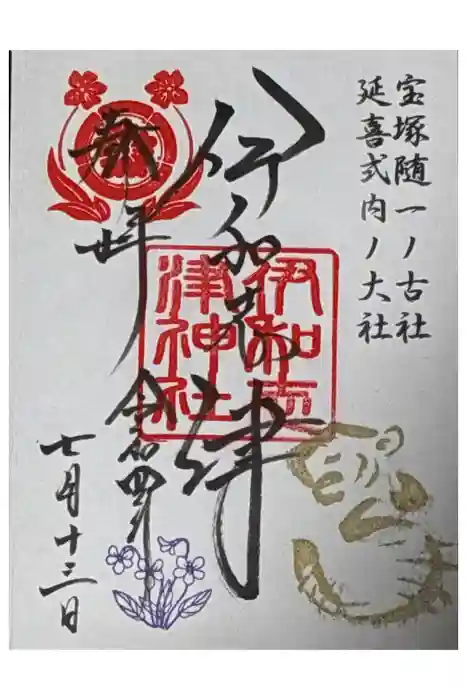 宝塚随一ノ古社
延喜式内ノ大社
伊和志津
伊和志
津神社
奉拝
令和四年
七月十三日